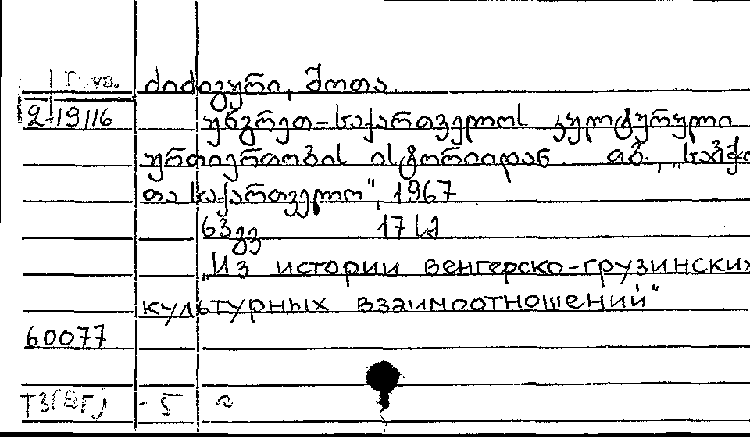 ძიძიგური, შოთა.
2-19116 უნგრეთ-საქართველოს კულტურული
ურთიერთობის ისტორიიდან. თბ., „საბჭო
თა საქართველო", 1967
63 გვ 17 სმ
„Из истории венгерско-грузинских
культурных взаимоотношений"
60077
5